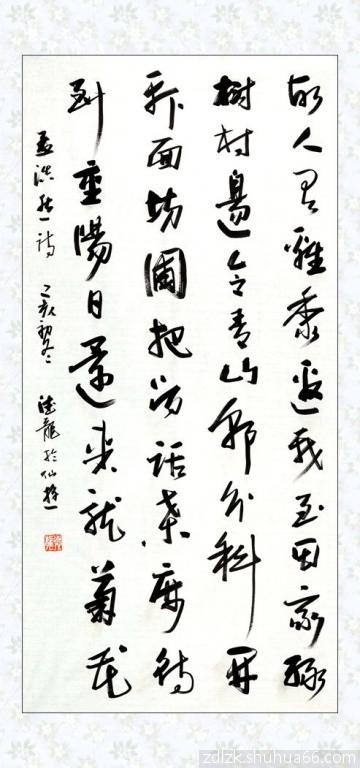 故人具雞黍邀我至田家綠
樹村邊合青山郭外斜開
軒面場圃把酒話桑麻待
到重陽日還來就菊花
孟浩然詩 己亥初冬 德龍於仙桃
zdlzk.shuhua66.com